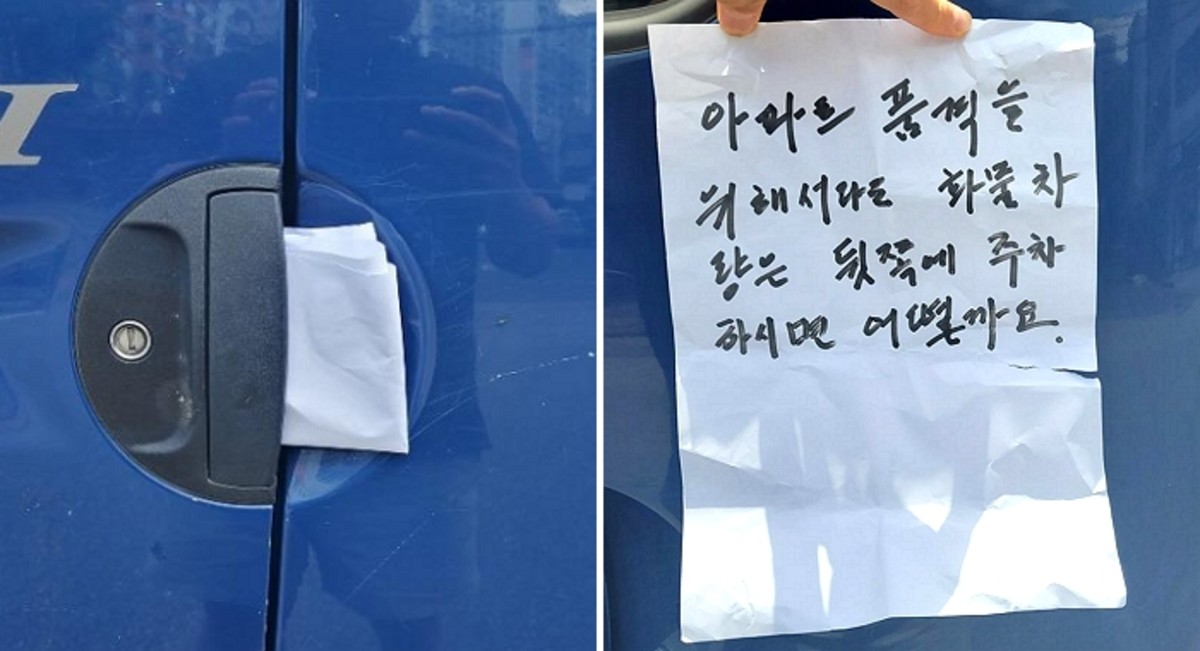 I
아파트 품격을
위해서라도 화물차
량은 뒷쪽에 주차
하시면 어떨까요.